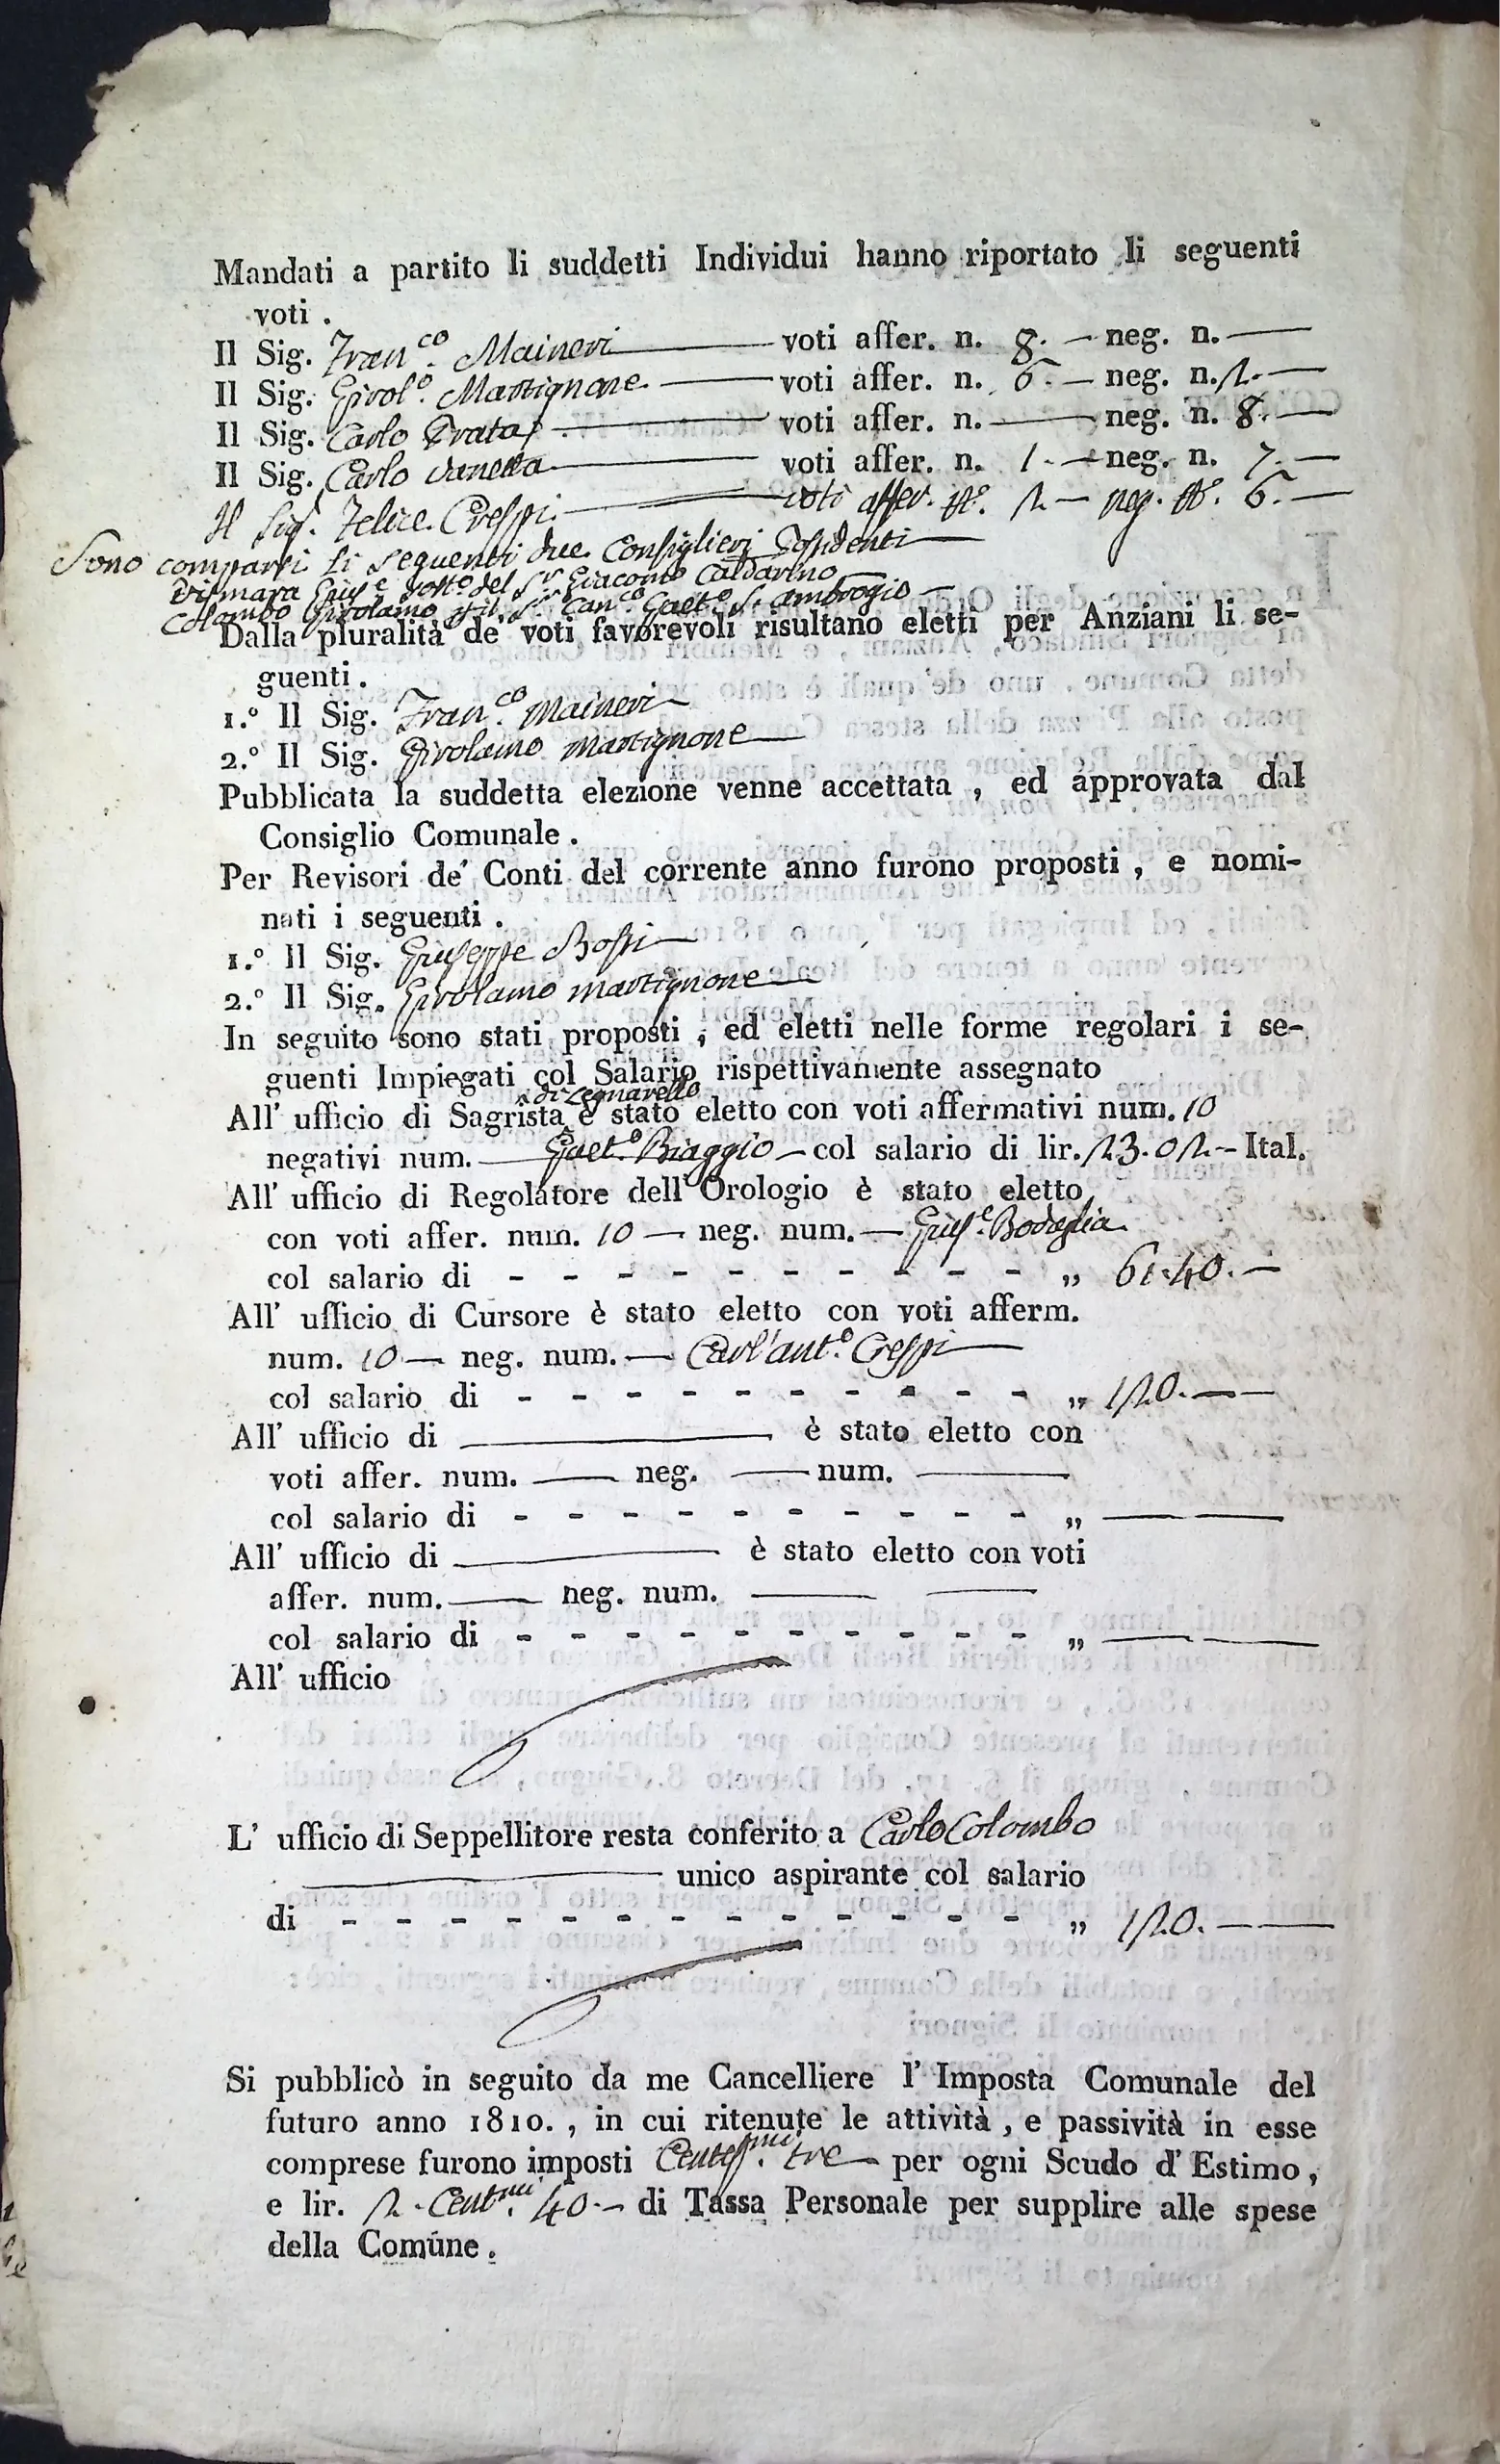 Mandati a partito li suddetti Individui hanno riportato li seguenti
voti .
Il Sig. Fran.co Maineri voti affer. n. 8. — neg. n. —
Il Sig. Girol.o Martignone — voti affer. n. 6. — neg. n. 2. —
Il Sig. Carlo Prata — voti affer. n. — neg. n. 8. —
Il Sig. Carlo — voti affer. n. 1. — neg. n. 7. —
Il Sig. Felice Crespi — voti affer. N.o 2. — neg. N.o 6. —
Sono comparsi li seguenti due Consiglieri Possidenti
Vismara Gius.e sost.o del S.r Giacomo Caldarino —
Colombo Girolamo S.r Can.co Gaet.o S. Ambrogio —
Dalla pluralità de' voti favorevoli risultano eletti per Anziani li se-
guenti .
1.º Il Sig. Fran.co Maineri
2.º Il Sig. Girolamo Martignone
Pubblicata la suddetta elezione venne accettata , ed approvata dal
Consiglio Comunale .
Per Revisori de' Conti del corrente anno furono proposti , e nomi-
nati i seguenti .
1.º Il Sig. Giuseppe Bossi
2.º Il Sig. Girolamo Martignone
In seguito sono stati proposti , ed eletti nelle forme regolari i se-
guenti Impiegati col Salario rispettivamente assegnato
di Legnarello
All' ufficio di Sagrista è stato eletto con voti affermativi num. 10
negativi num. — Gaet.o Biaggio — col salario di lir. 23. 02. — Ital.
All' ufficio di Regolatore dell' Orologio è stato eletto
con voti affer. num. 10 — neg. num. — Gius.e
col salario di - - - - - - - - - - „ 61.40. —
All' ufficio di Cursore è stato eletto con voti afferm.
num. 10 — neg. num. — Carl'ant.o Crespi
col salario di - - - - - - - - - - „ 120. — —
All' ufficio di — è stato eletto con
voti affer. num. — neg. — num. —
col salario di - - - - - - - - - - „ — —
All' ufficio di — è stato eletto con voti
affer. num. — neg. num. — —
col salario di - - - - - - - - - - „ — —
All' ufficio
L' ufficio di Seppellitore resta conferito a Carlo Colombo
— unico aspirante col salario
di - - - - - - - - - - - - - „ 120. — —
Si pubblicò in seguito da me Cancelliere l' Imposta Comunale del
futuro anno 1810. , in cui ritenute le attività , e passività in esse
comprese furono imposti Centes.mi tre — per ogni Scudo d' Estimo ,
e lir. 2. Cent.mi 40. — di Tassa Personale per supplire alle spese
della Comune .